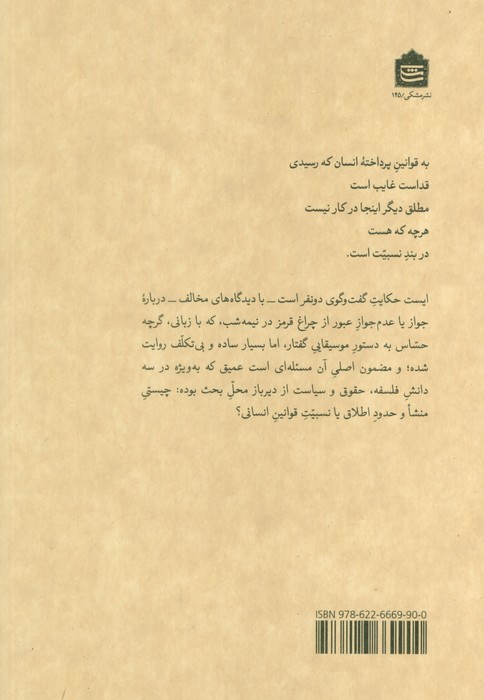 نشر مشکی/۱۴۵
به قوانینِ پرداختهٔ انسان که رسیدی
قداست غایب است
مطلق دیگر اینجا در کار نیست
هرچه که هست
در بندِ نسبیّت است.
ایست حکایتِ گفت‌وگوی دونفر است ــ با دیدگاه‌های مخالف ــ دربارهٔ
جواز یا عدم‌جوازِ عبور از چراغ قرمز در نیمه‌شب، که با زبانی، گرچه
حسّاس به دستورِ موسیقاییِ گفتار، اما بسیار ساده و بی‌تکلّف روایت
شده؛ و مضمون اصلیِ آن مسئله‌ای است عمیق که به‌ویژه در سه
دانشِ فلسفه، حقوق و سیاست از دیرباز محلِّ بحث بوده: چیستیِ
منشأ و حدودِ اطلاق یا نسبیّتِ قوانینِ انسانی؟
ISBN 978-622-6669-90-0